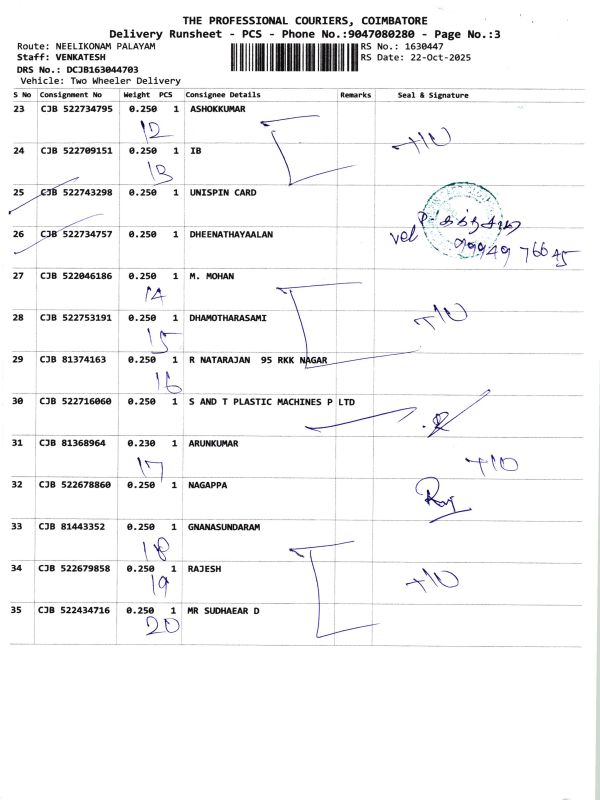 THE PROFESSIONAL COURIERS, COIMBATORE
Delivery Runsheet - PCS - Phone No.:9047080280 - Page No.:3
Route: NEELIKONAM PALAYAM RS No.: 1630447
Staff: VENKATESH RS Date: 22-Oct-2025
DRS No.: DCJB163044703
Vehicle: Two Wheeler Delivery
S No Consignment No Weight PCS Consignee Details Remarks Seal & Signature
23 CJB 522734795 0.250 1 ASHOKKUMAR
12
24 CJB 522709151 0.250 1 IB
13
25 CJB 522743298 0.250 1 UNISPIN CARD
26 CJB 522734757 0.250 1 DHEENATHAYAALAN
vel 99949 76645
27 CJB 522046186 0.250 1 M. MOHAN
14
28 CJB 522753191 0.250 1 DHAMOTHARASAMI
15
29 CJB 81374163 0.250 1 R NATARAJAN 95 RKK NAGAR
16
30 CJB 522716060 0.250 1 S AND T PLASTIC MACHINES P LTD
31 CJB 81368964 0.230 1 ARUNKUMAR
17
32 CJB 522678860 0.250 1 NAGAPPA
33 CJB 81443352 0.250 1 GNANASUNDARAM
18
34 CJB 522679858 0.250 1 RAJESH
19
35 CJB 522434716 0.250 1 MR SUDHAEAR D
20